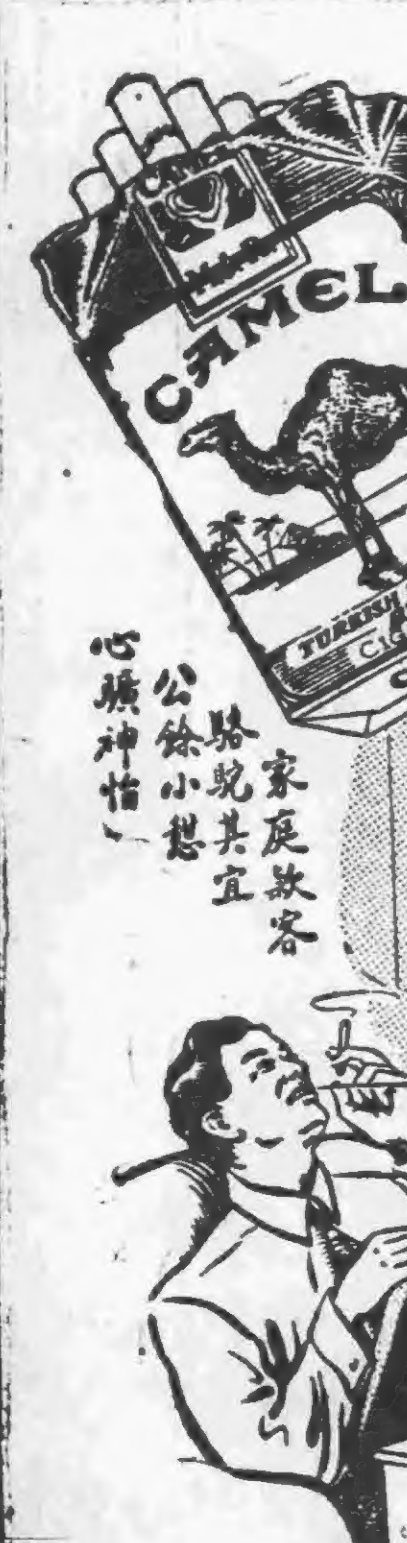 CAMEL
TURKISH
CIG
家庭款客
駱駝其宜
公餘小憇
心曠神怡